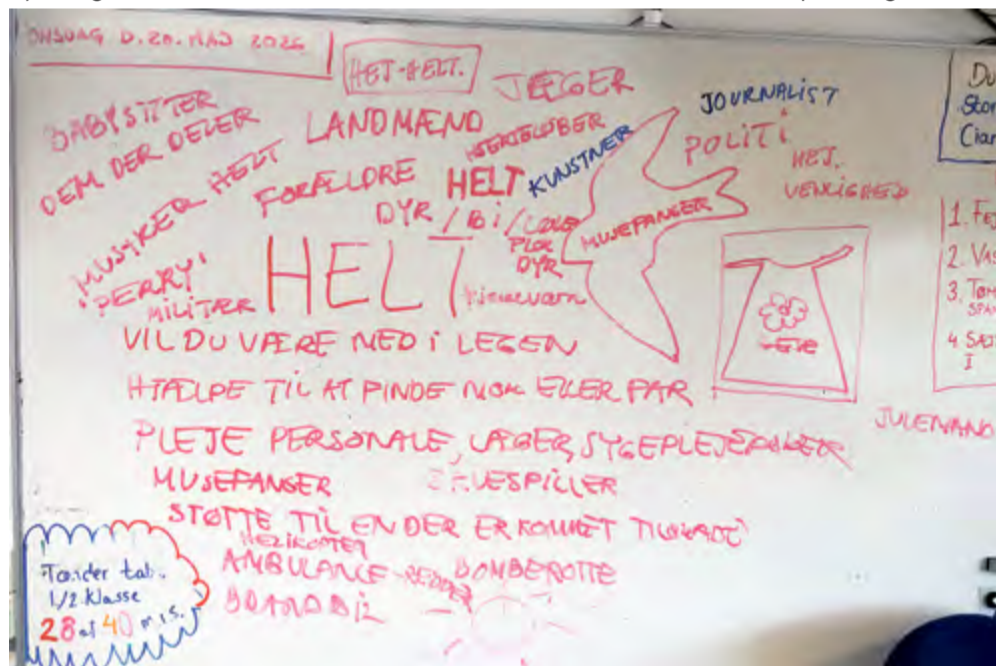 ONSDAG D. 20. MAJ 2026
HET-HELT.
JÆGER
BABYSITTER
DEM DER DELER
LANDMÆND
JOURNALIST
POLITI
HEJ.
VENLIGHED
MUSIKER HELT
FORÆLDRE
HELT
KUNSTNER
DYR / BI /
DYR
MUSEFANGER
"PERRY"
MILITÆR
HELT
Hjemmeværn
VIL DU VÆRE MED I LEGEN
HJÆLPE TIL AT FINDE MOR ELLER FAR
PLEJE PERSONALE, LÆGER, SYGEPLEJERSKER
MUSEFANGER
STØTTE TIL EN DER ER KOMMET TILSKADE
HELIKOPTER
AMBULANCE-REDDER
BOMBEROTTE
BRANDBIL
Tænder tab.
1/2 Klasse
28 af 40
JULEMAND
Du
1.
2.
3.
4.
I